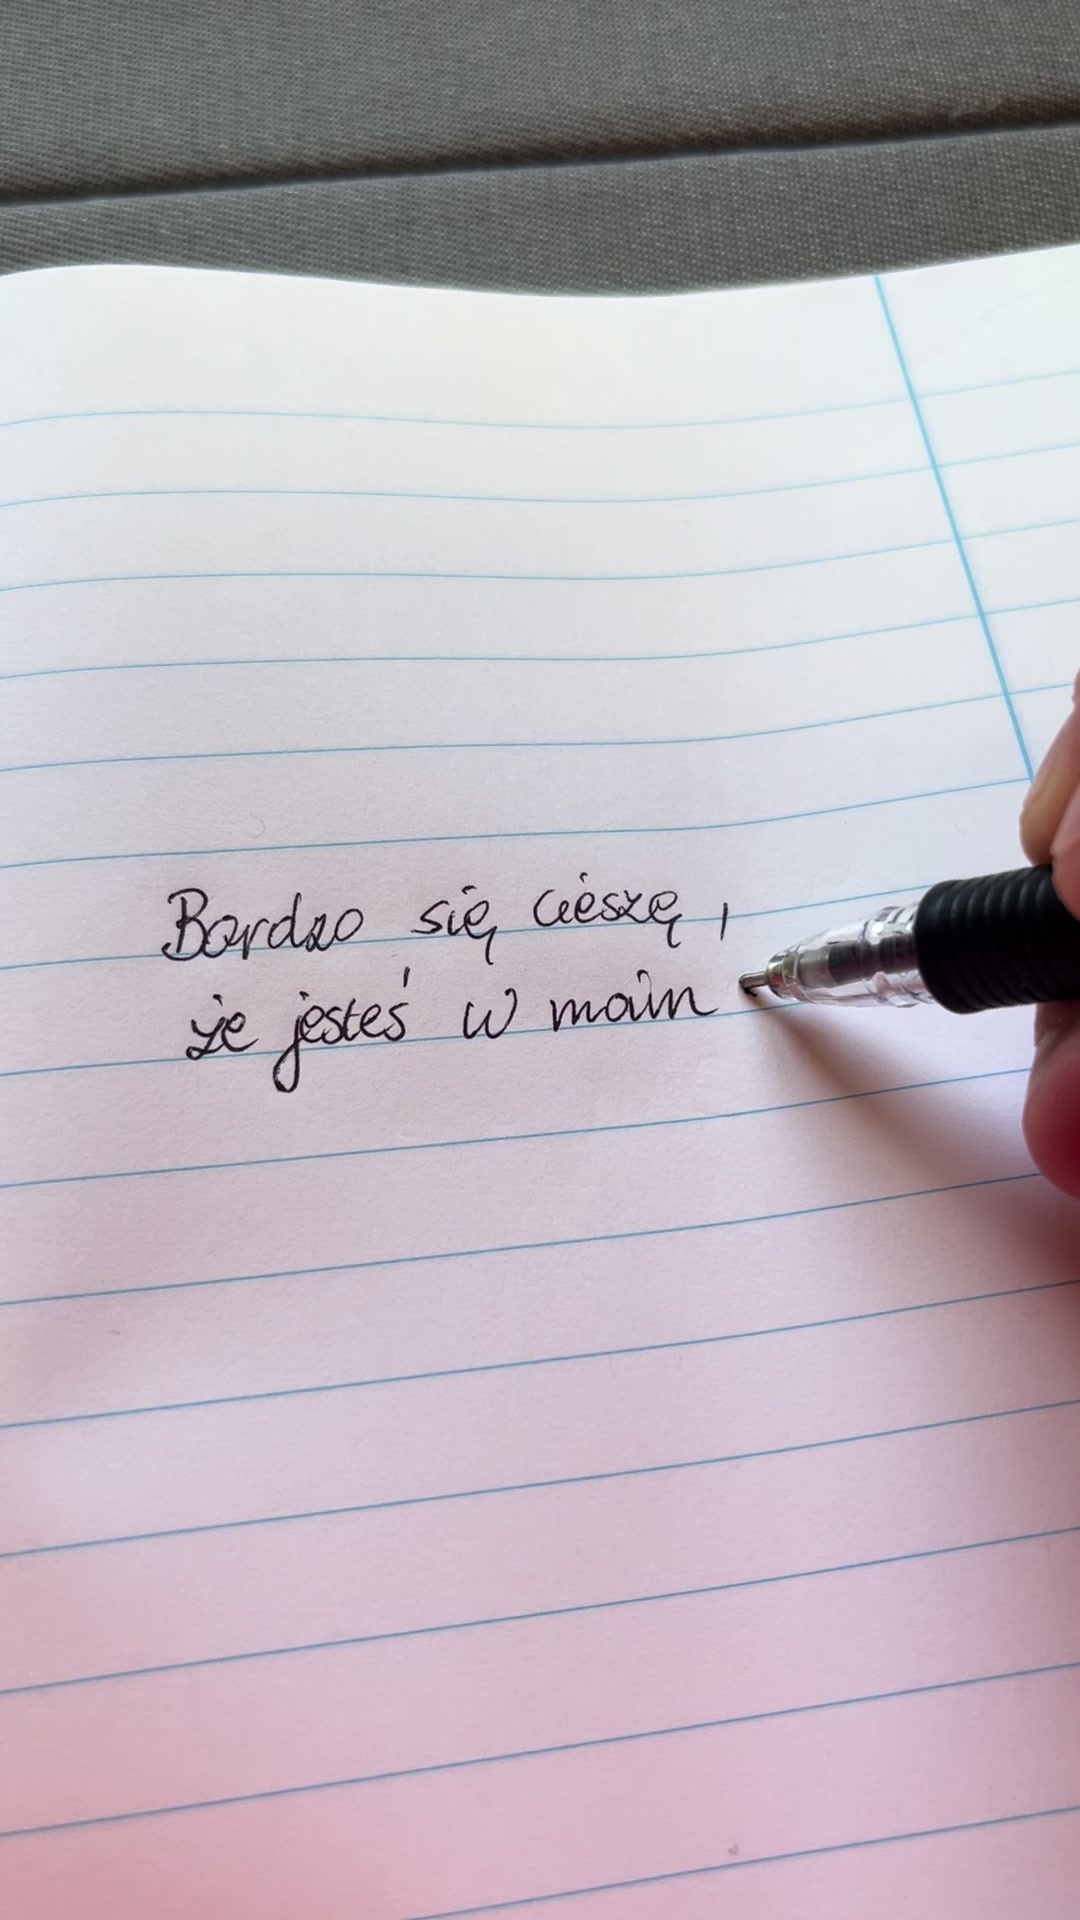 Bardzo się cieszę,
że jesteś w moim